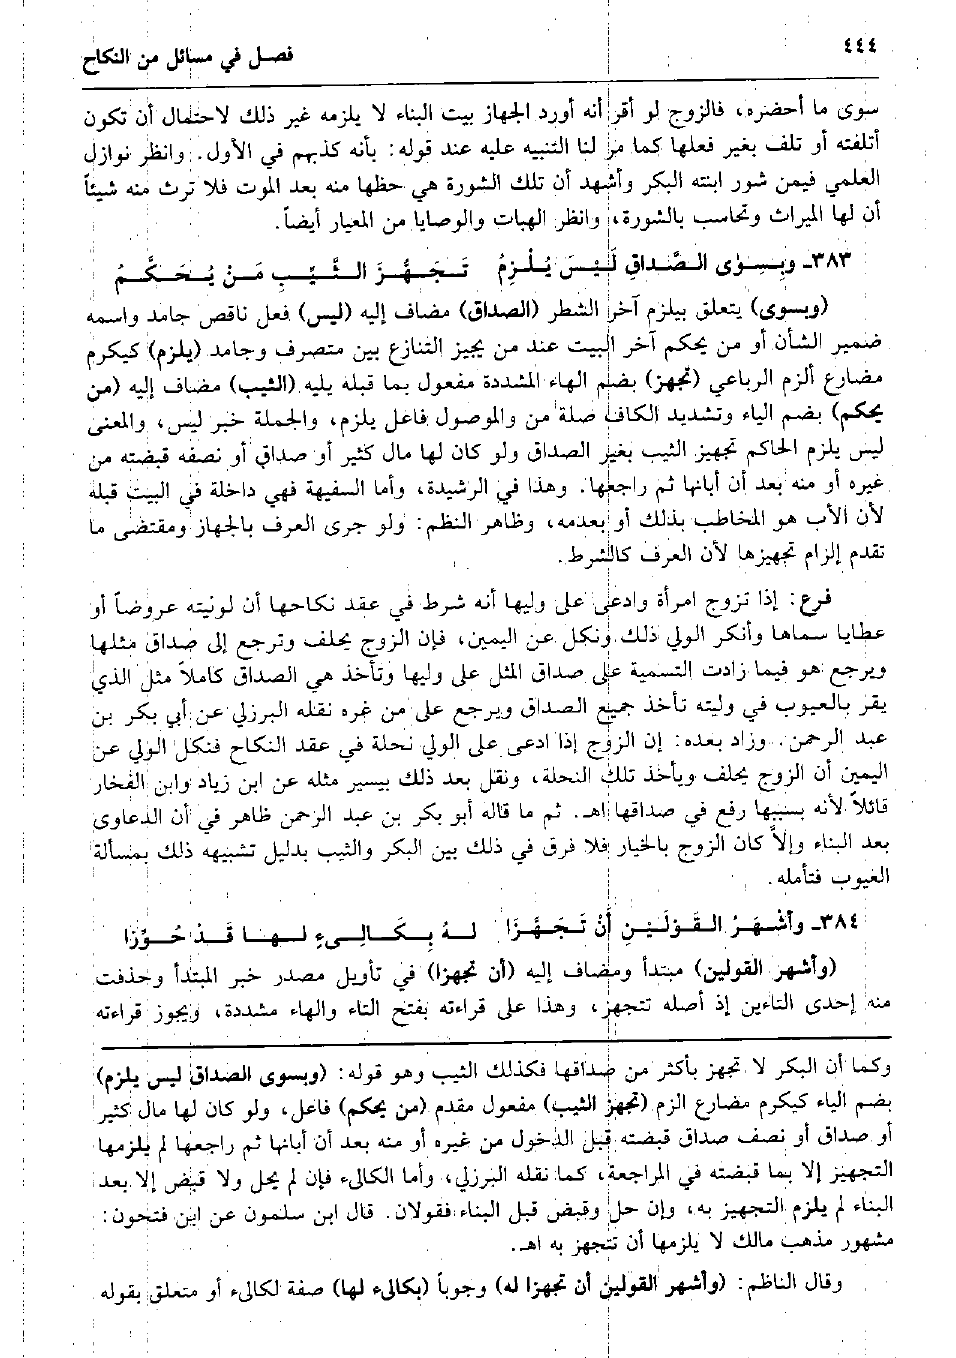 ٤٤٤
فصل في مسائل من النكاح
سوى ما أحضره، فالزوج لو أقر أنه أورد الجهاز بيت البناء لا يلزمه غير ذلك لاحتمال أن تكون
أتلفته أو تلف بغير فعلها كما مرّ لنا التنبيه عليه عند قوله: بأنه كذبهم في الأول. وانظر نوازل
العلمي فيمن شور ابنته البكر وأشهد أن تلك الشورة هي حظها منه بعد الموت فلا ترث منه شيئاً
أن لها الميراث وتحاسب بالشورة، وانظر الهبات والوصايا من المعيار أيضاً.
٣٨٣ـ وبِسِوَى الصَّداقِ لَيسَ يُلْزِمُ تَجَهُّزَ الثَّيِّبِ مَنْ يُحَكَّمُ
(وبسوى) يتعلق بيلزم آخر الشطر (الصداق) مضاف إليه (ليس) فعل ناقص جامد واسمه
ضمير الشأن أو من يحكم آخر البيت عند من يجيز التنازع بين متصرف وجامد (يلزم) كيكرم
مضارع ألزم الرباعي (تجهز) بضم الهاء المشددة مفعول بما قبله يليه (الثيب) مضاف إليه (من
يحكم) بضم الياء وتشديد الكاف صلة من والموصول فاعل يلزم، والجملة خبر ليس، والمعنى
ليس يلزم الحاكم تجهيز الثيب بغير الصداق ولو كان لها مال كثير أو صداق أو نصفه قبضته من
غيره أو منه بعد أن أبانها ثم راجعها. وهذا في الرشيدة، وأما السفيهة فهي داخلة في البيت قبله
لأن الأب هو المخاطب بذلك أو بعدمه، وظاهر النظم: ولو جرى العرف بالجهاز ومقتضى ما
تقدم إلزام تجهيزها لأن العرف كالشرط.
فرع: إذا تزوج امرأة وادعى على وليها أنه شرط في عقد نكاحها أن لوليته عروضاً أو
عطايا سماها وأنكر الولي ذلك ونكل عن اليمين، فإن الزوج يحلف وترجع إلى صداق مثلها
ويرجع هو فيما زادت التسمية على صداق المثل على وليها وتأخذ هي الصداق كاملاً مثل الذي
يقر بالعيوب في وليته تأخذ جميع الصداق ويرجع على من غره نقله البرزلي عن أبي بكر بن
عبد الرحمن. وزاد بعده: إن الزوج إذا ادعى على الولي نحلة في عقد النكاح فنكل الولي عن
اليمين أن الزوج يحلف ويأخذ تلك النحلة، ونقل بعد ذلك بيسير مثله عن ابن زياد وابن الفخار
قائلاً لأنه بسببها رفع في صداقها اهـ. ثم ما قاله أبو بكر بن عبد الرحمن ظاهر في أن الدعاوى
بعد البناء وإلاَّ كان الزوج بالخيار فلا فرق في ذلك بين البكر والثيب بدليل تشبيهه ذلك بمسألة
العيوب فتأمله.
٣٨٤ـ وأشْهَرُ القَوْلَيْنِ أنْ تَجَهَّزَا لهُ بِكَالِىءٍ لها قَدْ حُوِّزَا
(وأشهر القولين) مبتدأ ومضاف إليه (أن تجهزا) في تأويل مصدر خبر المبتدأ وحذفت
منه إحدى التاءين إذ أصله تتجهز، وهذا على قراءته بفتح التاء والهاء مشددة، ويجوز قراءته
وكما أن البكر لا تجهز بأكثر من صداقها فكذلك الثيب وهو قوله: (وبسوى الصداق ليس يلزم)
بضم الياء كيكرم مضارع الزم (تجهز الثيب) مفعول مقدم (من يحكم) فاعل، ولو كان لها مال كثير
أو صداق أو نصف صداق قبضته قبل الدخول من غيره أو منه بعد أن أبانها ثم راجعها لم يلزمها
التجهيز إلا بما قبضته في المراجعة، كما نقله البرزلي، وأما الكالىء فإن لم يحل ولا قبض إلا بعد
البناء لم يلزم التجهيز به، وإن حل وقبض قبل البناء فقولان. قال ابن سلمون عن ابن فتحون:
مشهور مذهب مالك لا يلزمها أن تتجهز به اهـ.
وقال الناظم: (وأشهر القولين أن تجهزا له) وجوباً (بكالىء لها) صفة لكالىء أو متعلق بقوله